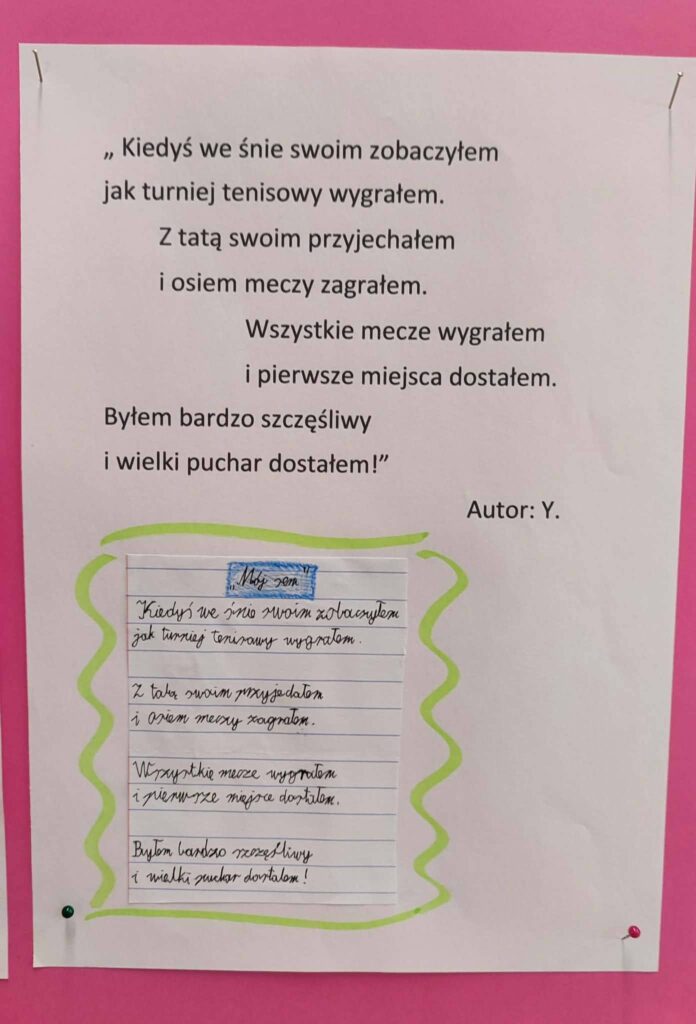 „ Kiedyś we śnie swoim zobaczyłem
jak turniej tenisowy wygrałem.
Z tatą swoim przyjechałem
i osiem meczy zagrałem.
Wszystkie mecze wygrałem
i pierwsze miejsca dostałem.
Byłem bardzo szczęśliwy
i wielki puchar dostałem!”
Autor: Y.
„Mój sen”
Kiedyś we śnie swoim zobaczyłem
jak turniej tenisowy wygrałem.
Z tatą swoim przyjedałem
i osiem meczy zagrałem.
Wszystkie mecze wygrałem
i pierwsze miejsce dostałem.
Byłem bardzo szczęśliwy
i wielki puchar dostałem!